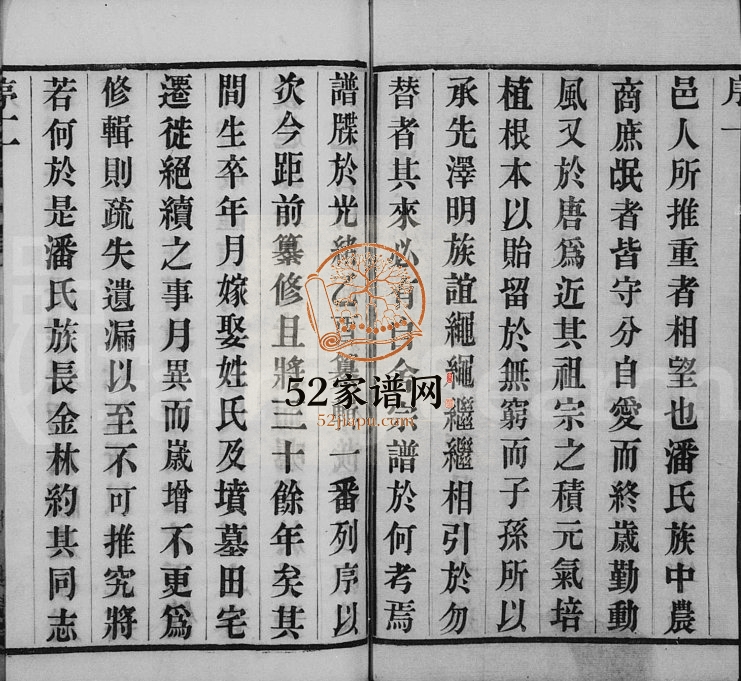 序一
邑人所推重者相望也潘氏族中農
商庶氓者皆守分自愛而終歲勤動
風又於唐爲近其祖宗之積元氣培
植根本以貽留於無窮而子孫所以
承先澤明族誼繩繩繼繼相引於勿
替者其來必有自今宗譜於何考焉
譜牒於光緒乙纂輯一番列序以
次今距前纂修且將三十餘年矣其
間生卒年月嫁娶姓氏及墳墓田宅
遷徙絕續之事月異而歲增不更爲
修輯則疏失遺漏以至不可推究將
若何於是潘氏族長金林約其同志
序二
52家谱网
52jiapu.com